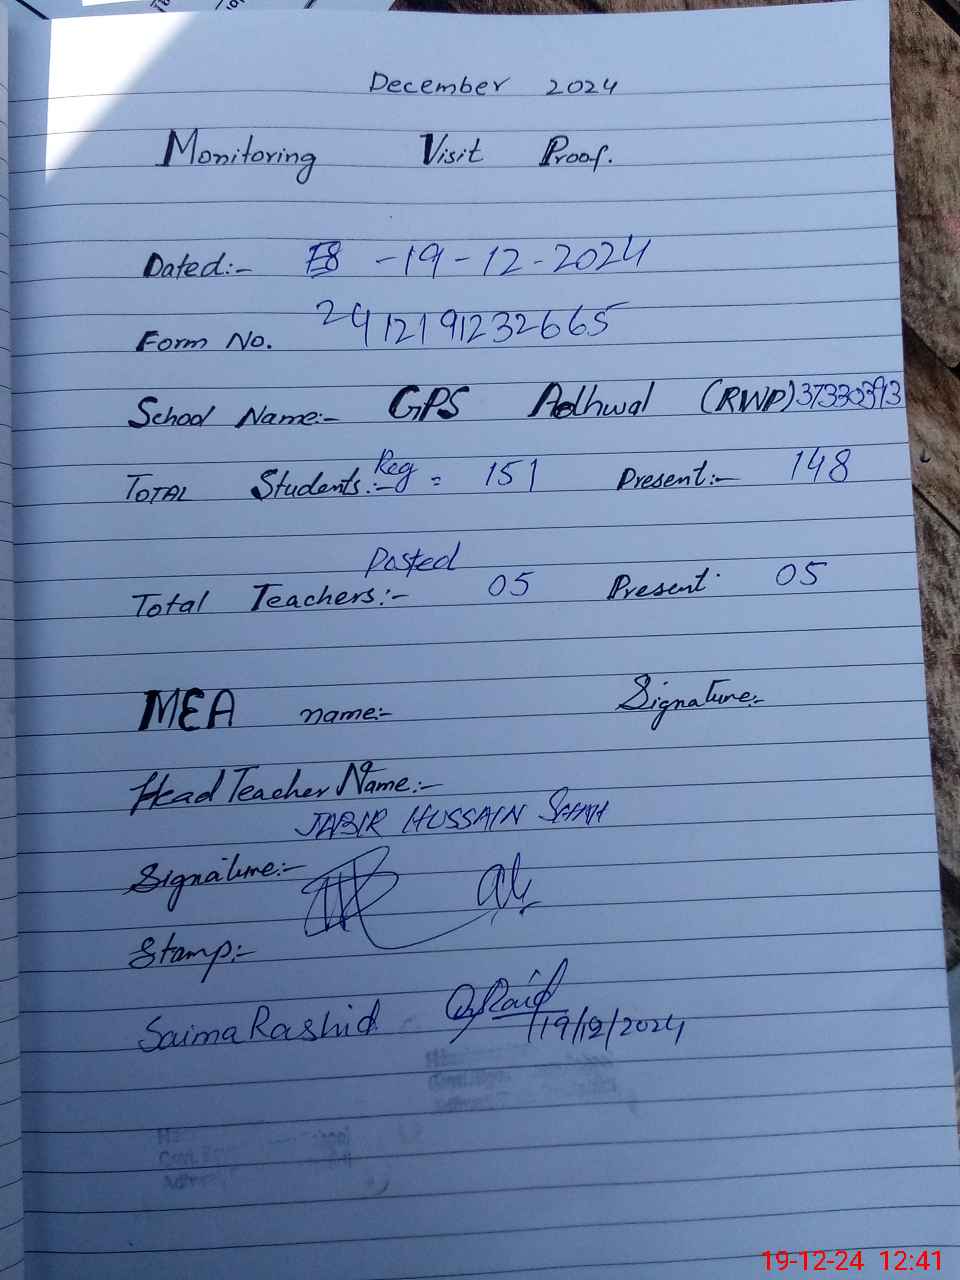 December 2024
Monitoring Visit Proof.
Dated:- -19-12-2024
Form No. 2412191232665
School Name:- GPS Adhwal (RWP) 37330393
Total Students:- Reg = 151 Present:- 148
Posted
Total Teachers:- 05 Present 05
MEA name:- Signature:-
Head Teacher Name:-
JABIR HUSSAIN SHAH
Signature:-
Stamp:-
Saima Rashid 19/12/2024
19-12-24 12:41